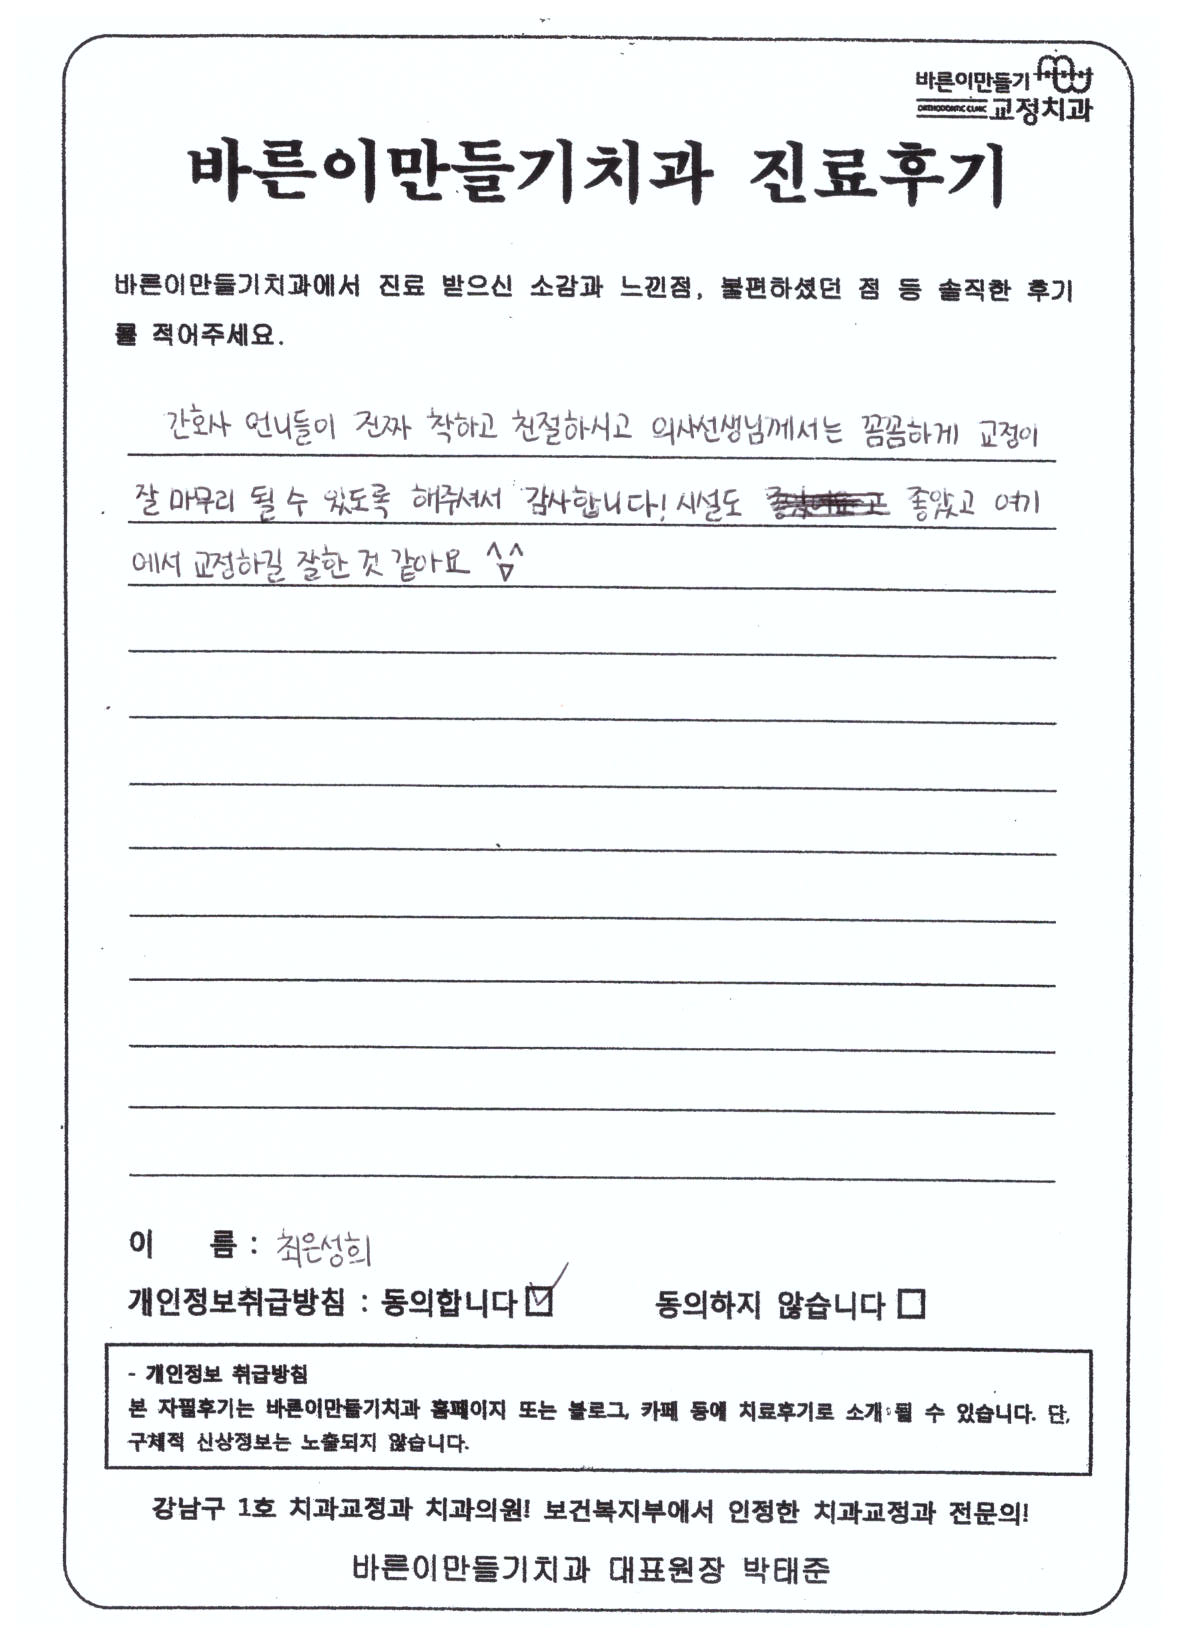 바른이만들기
ORTHODONTIC CLINIC 교정치과
바른이만들기치과 진료후기
바른이만들기치과에서 진료 받으신 소감과 느낀점, 불편하셨던 점 등 솔직한 후기
를 적어주세요.
간호사 언니들이 진짜 착하고 친절하시고 의사선생님께서는 꼼꼼하게 교정이
잘 마무리 될 수 있도록 해주셔서 감사합니다! 시설도 좋았고 여기
에서 교정하길 잘한 것 같아요 ^▽^
이 름 : 최은성희
개인정보취급방침 : 동의합니다 ☑ 동의하지 않습니다 □
- 개인정보 취급방침
본 자필후기는 바른이만들기치과 홈페이지 또는 블로그, 카페 등에 치료후기로 소개 될 수 있습니다. 단,
구체적 신상정보는 노출되지 않습니다.
강남구 1호 치과교정과 치과의원! 보건복지부에서 인정한 치과교정과 전문의!
바른이만들기치과 대표원장 박태준